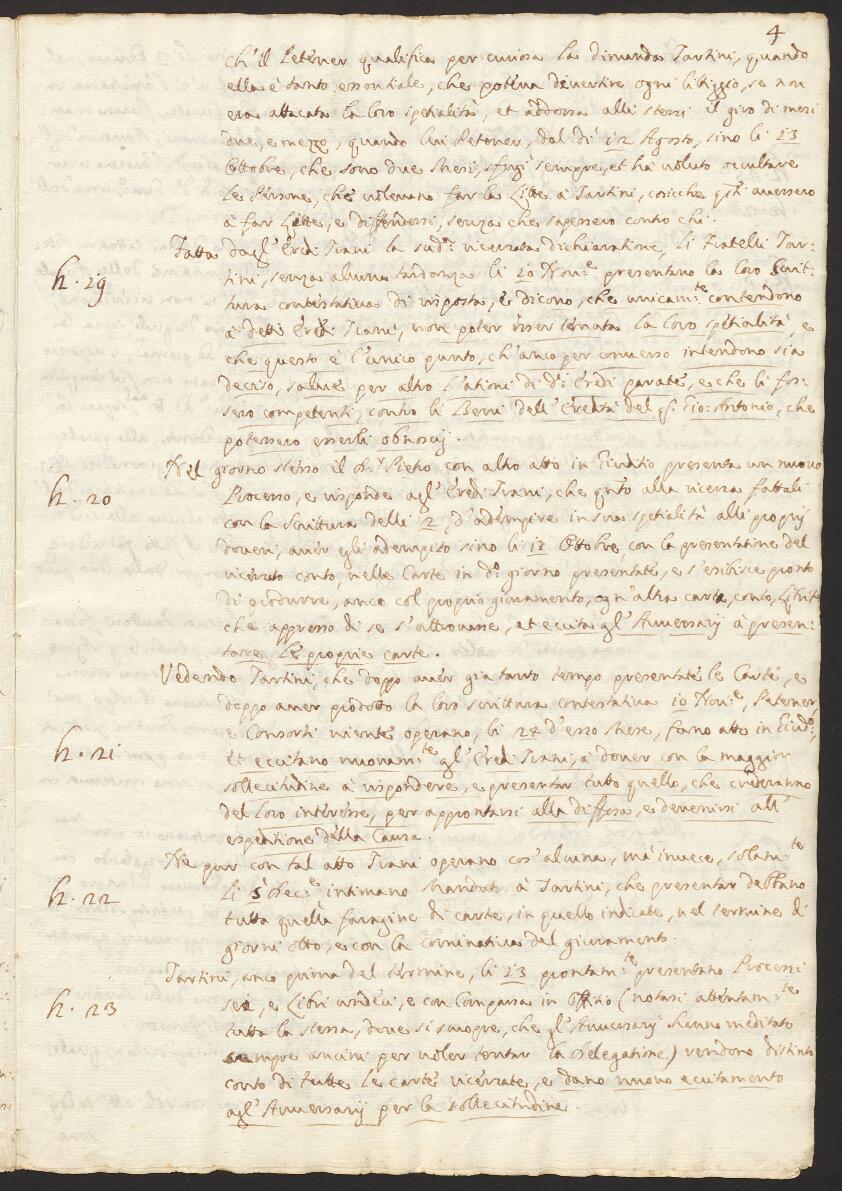 4
ch'il Peterner qualifica per curiosa la dimanda Tartini, quando
ella è tanto essentiale, che poteva divertire ogni litiggio, se non
era attacata la loro spetialità, et addossa alli stessi il giro di mesi
due, e mezzo, quando lui Peterner, dal dì 12 Agosto, sino li 23
Ottobre, che sono due Mesi, sfugì sempre, et hà voluto occultare
le Persone, che volevano far la Litte à Tartini, cosicche qsti avessero
à far Litte, e diffendersi, senza che sapessero contro chi.
Fatta dagl'Eredi Trani la sudta ricercata dichiaratione, li Fratelli Tar-
h. 19
tini, senza alcuna tardanza li 10 Nove presentano la loro Scrit-
tura contestativa di risposta, e dicono, che unicamte contendono
à detti Eredi Trani, non poter esser tenuta la loro spetialità, e
che questo è l'unico punto, ch'anco per converso intendono sia
deciso, salve per altro l'attioni di di Eredi parate, e che li fos-
sero competenti, contro li Beni dell'Eredità del qm Gio: Antonio, che
potessero esserli obnoxij.
Nel giorno stesso il Sr Pietro con altro atto in Giuditio presenta un nuovo
h. 20
Processo, e risponde agl'Eredi Trani, che qnto alla ricerca fattali
con la Scrittura delli 2, d'adempire in sua spetialità alli proprij
doveri, aver egli adempito sino li 12 Ottobre, con la presentatione del
ricercato conto, nelle Carte in do giorno presentate, e s'esibisce pronto
di produrre, anco col proprio giuramento, ogn'altra carta, conto, Libri
che appresso di se s'attrovasse, et eccita gl'Avversarij à presen-
tare le proprie carte.
Vedendo Tartini, che doppo aver già tanto tempo presentate le Carte, e
doppo aver prodotto la loro scrittura contestativa 10 Nove, Peterner,
e Consorti niente operano, li 27 d'esso Mese, fano atto in Giudo,
h. 21
et eccitano nuovamte gl'Eredi Trani, à dover con la maggior
sollecitudine à rispondere, e presentar tutto quello, che crederanno
del loro interesse, per approntarsi alla diffesa, e devenirsi all'
espeditione della Causa.
Ne pur con tal atto Trani operano cos'alcuna, mà invece, solamte
h. 22
li 5 Dece intimano Mandato à Tartini, che presentar debbano
tutta quella faragine di carte, in quello indicate, nel termine di
giorni otto, e con la cominativa del giuramento.
Tartini, anco prima del termine, li 13 prontamte presentano Processi
h. 23
sei, e Libri undeci, e con Comparsa in Offitio (notasi attentamte
tutta la stessa, dove si scuopre, che gl'Avversarij hanno meditato
sempre ancini per voler tentar la Delegatione) rendono distinto
conto di tutte le carte ricercate, e dano nuovo eccitamento
agl'Avversarij per la sollecitudine.